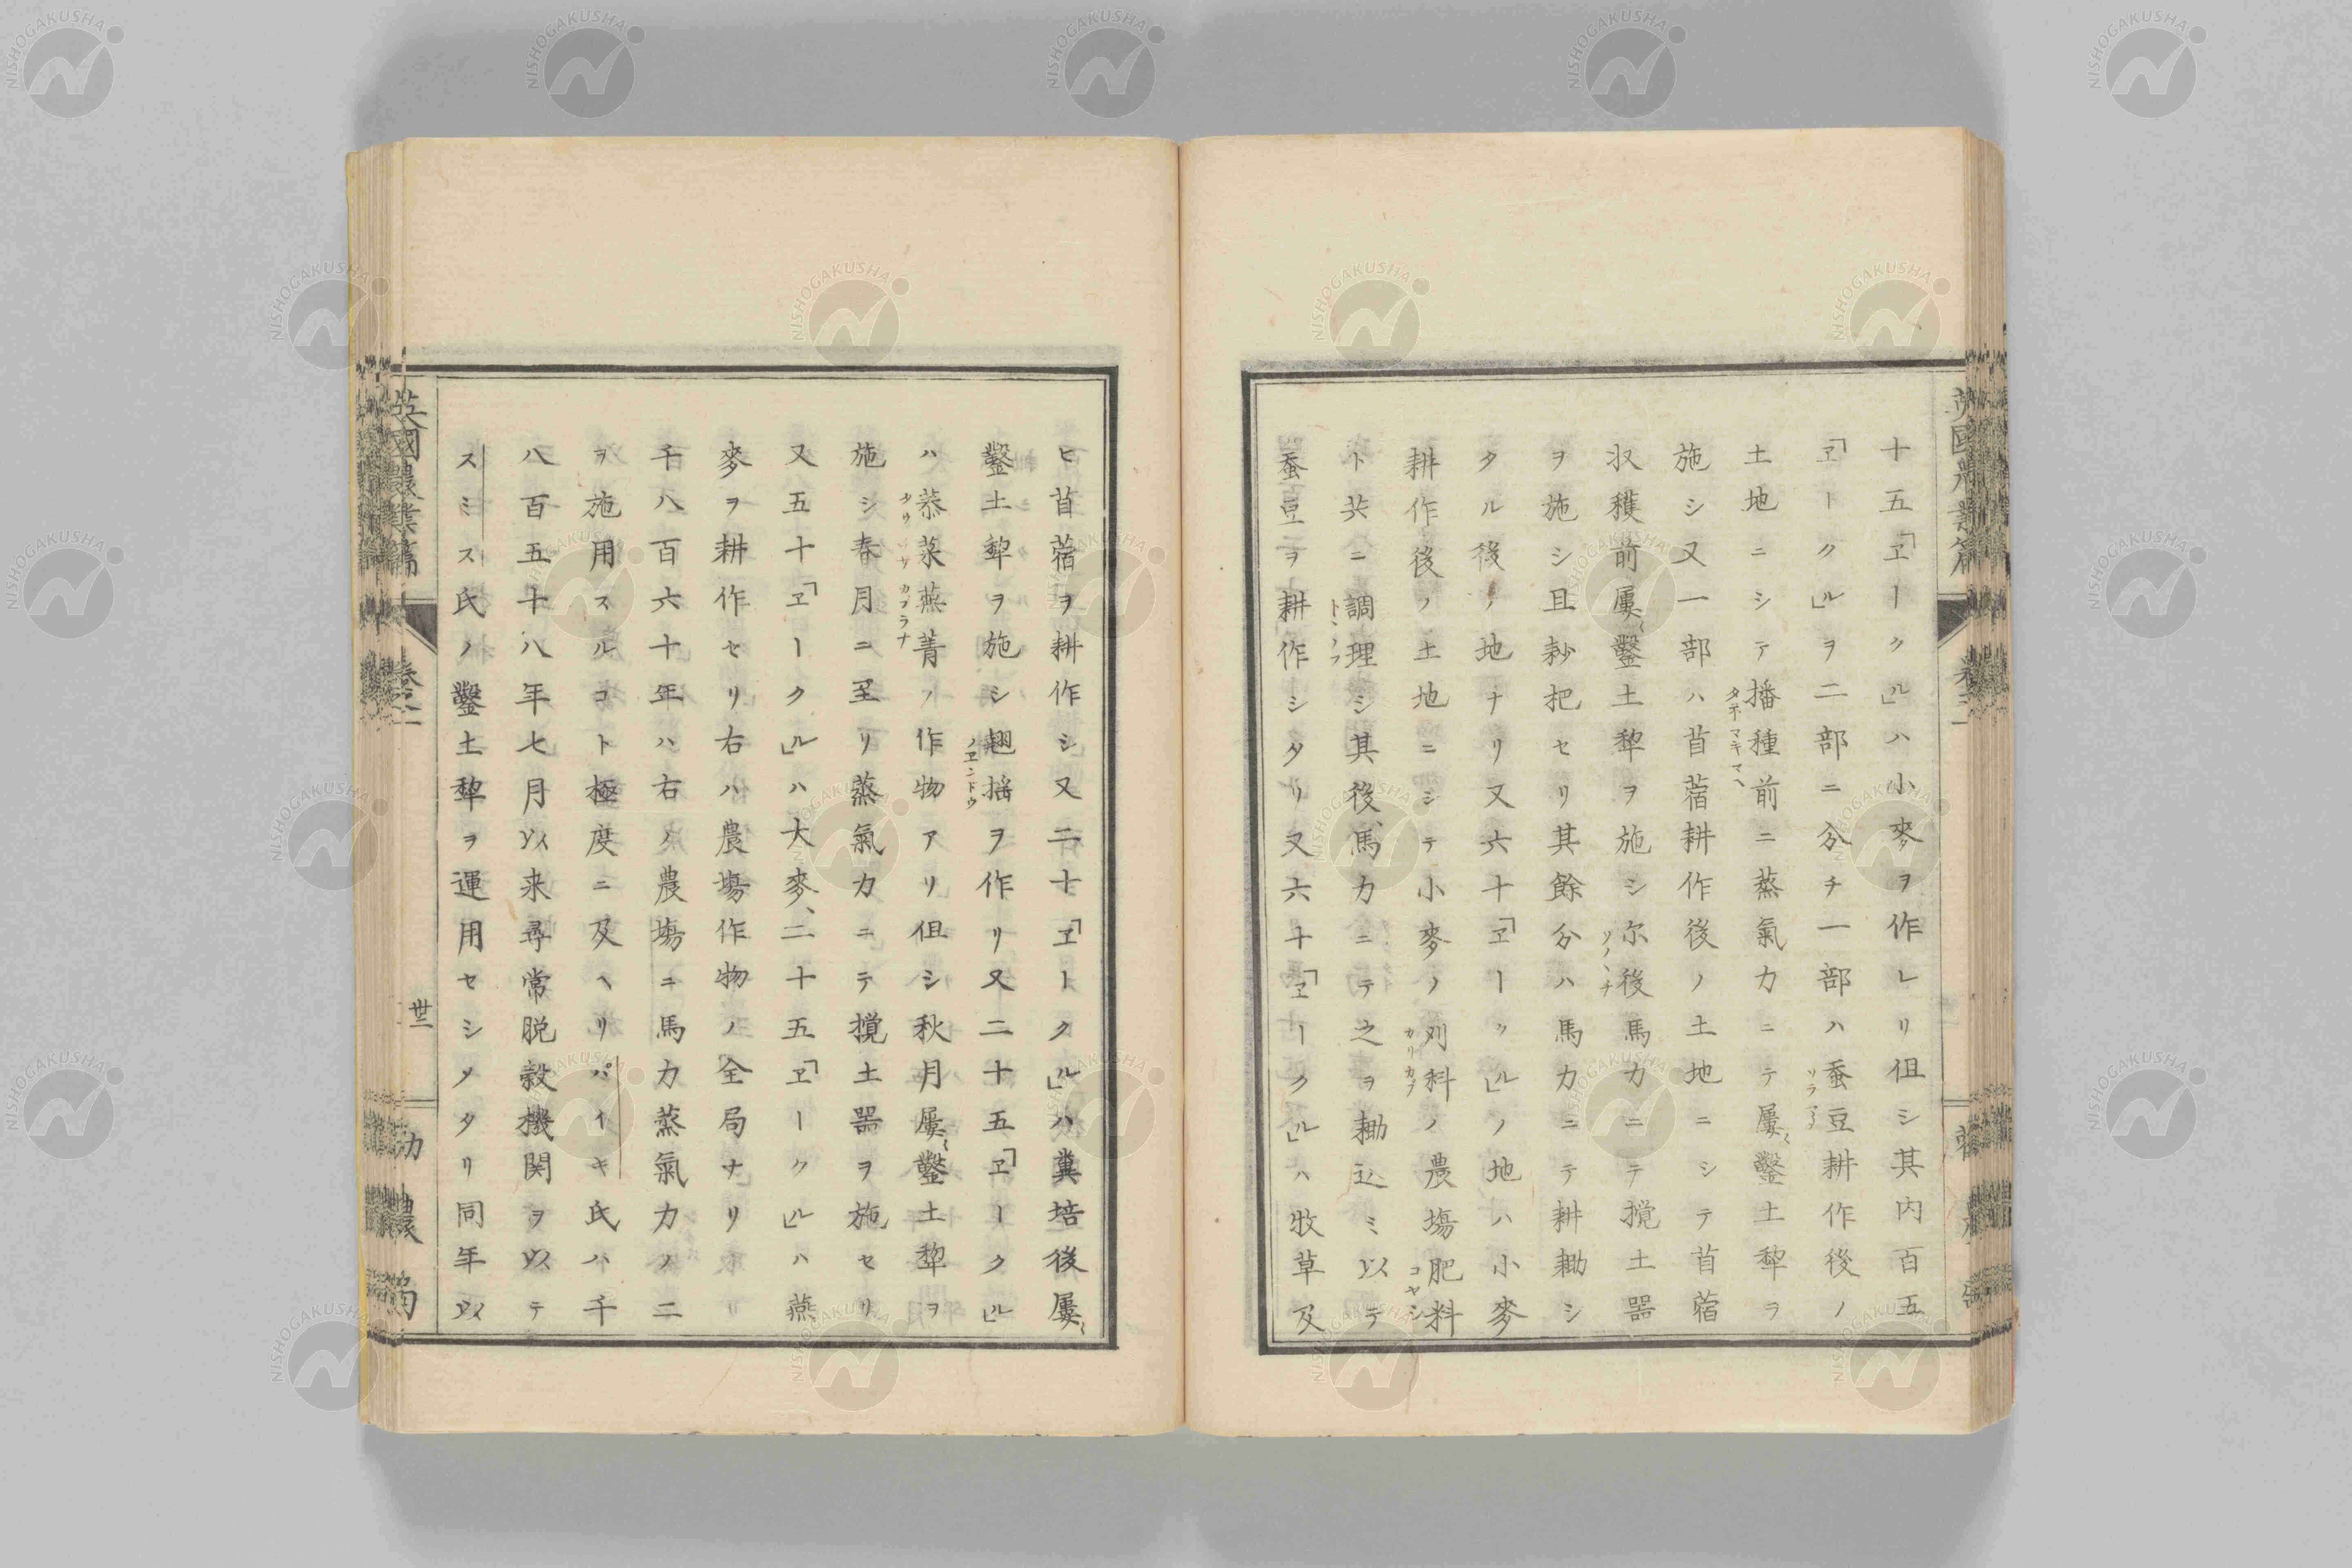 十五「ヱークル」ハ小麥ヲ作レリ但シ其内百五
「ヱークル」ヲ二部ニ分チ一部ハ蚕豆耕作後ノ
土地ニシテ播種前ニ蒸氣力ニテ屢〻鑿土犂ヲ
施シ又一部ハ苜蓿耕作後ノ土地ニシテ苜蓿
収穫前屢〻鑿土犂ヲ施シ尓後馬力ニテ攪土噐
ヲ施シ且耖把セリ其餘分ハ馬力ニテ耕耡シ
タル後ノ地ナリ又六十「ヱークル」ノ地ハ小麥
耕作後ノ土地ニシテ小麥ノ刈科ノ農塲肥料
ト共ニ調理シ其後、馬力ニテ之ヲ耡込ミ以テ
蚕豆ヲ耕作シタリ又六十「ヱークル」ハ牧草及
ヒ苜蓿ヲ耕作シ又二十「ヱークル」ハ糞培後屢〻
鑿土犂ヲ施シ翹揺ヲ作リ又二十五「ヱークル」
ハ菾菜蕪菁ノ作物アリ但シ秋月屢〻鑿土犂ヲ
施シ春月ニ至リ蒸氣力ニテ攪土噐ヲ施セリ
又五十「ヱークル」ハ大麥、二十五「ヱークル」ハ燕
麥ヲ耕作セリ右ハ農塲作物ノ全局ナリ
千八百六十年ハ右ノ農塲ニ馬力蒸氣力ノ二
ヲ施用スルコト極度ニ及ヘリパイキ氏ハ千
八百五十八年七月以来尋常脱穀機関ヲ以テ
スミス氏ノ鑿土犂ヲ運用セシメタリ同年以
英國農業篇
卷之二
丗三
勸農局